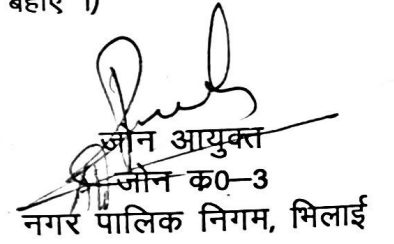 बहाए ।)
जोन आयुक्त
जोन क0–3
नगर पालिक निगम, भिलाई